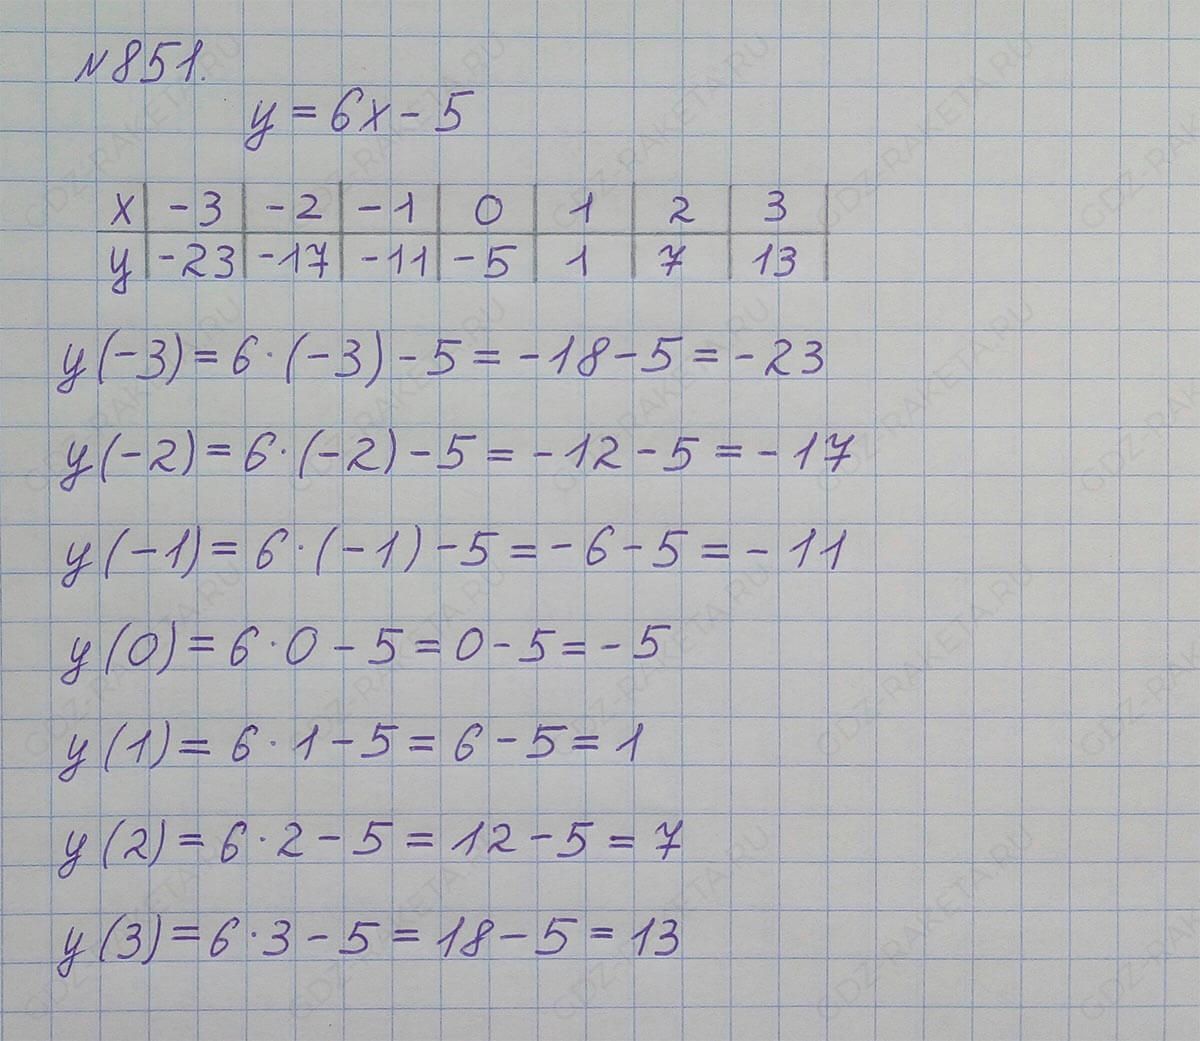 №851.
y = 6x - 5
x | -3 | -2 | -1 | 0 | 1 | 2 | 3
y | -23 | -17 | -11 | -5 | 1 | 7 | 13
y(-3) = 6·(-3) - 5 = -18 - 5 = -23
y(-2) = 6·(-2) - 5 = -12 - 5 = -17
y(-1) = 6·(-1) - 5 = -6 - 5 = -11
y(0) = 6·0 - 5 = 0 - 5 = -5
y(1) = 6·1 - 5 = 6 - 5 = 1
y(2) = 6·2 - 5 = 12 - 5 = 7
y(3) = 6·3 - 5 = 18 - 5 = 13
GDZ-RAKETA.RU